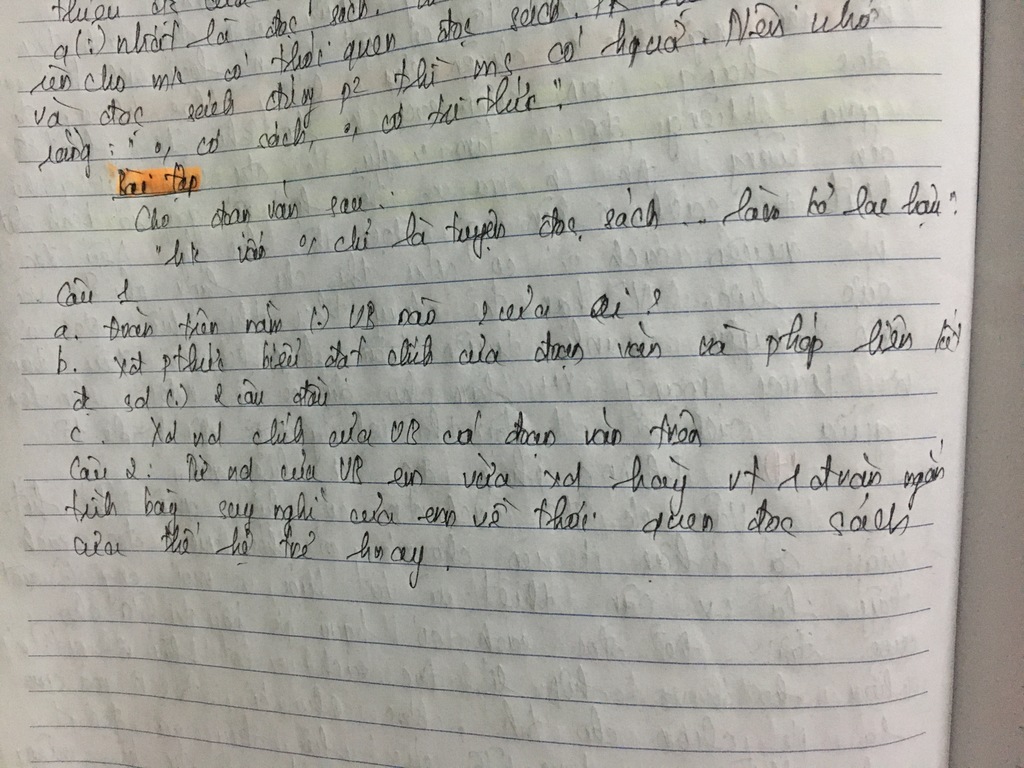 q(:) nhất là đọc sách.
rèn cho mk có thói quen đọc sách.
và đọc sách đúng p² thì ms có hquả. Nên nhớ
rằng: " o, có sách, o, có tri thức".
Bài tập
Cho đoạn văn sau:
"Hk vấn o, chỉ là chuyện đọc sách ... làm kẻ lạc hậu".
Câu 1
a. Đoạn trên nằm (:) VB nào ? của ai ?
b. Xđ pthức biểu đạt chính của đoạn văn và phép liên kết
đc sd (:) 2 câu đầu
c. Xđ nd chính của VB có đoạn văn trên
Câu 2: Từ nd của VB em vừa xđ hãy vt 1 đ văn ngắn
trình bày suy nghĩ của em về thói quen đọc sách
của thế hệ trẻ hnay.